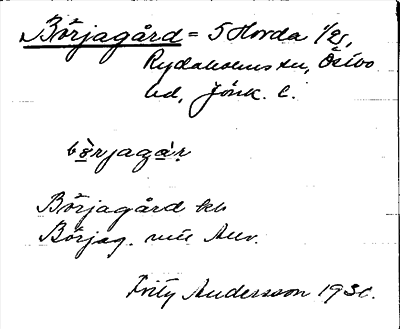 Börjagård = 5 Horda 1/21,
Rydaholms sn, Östbo
hd, Jönk. l.
börjagár
Börjagård
Börjag.
Fritz Andersson 193